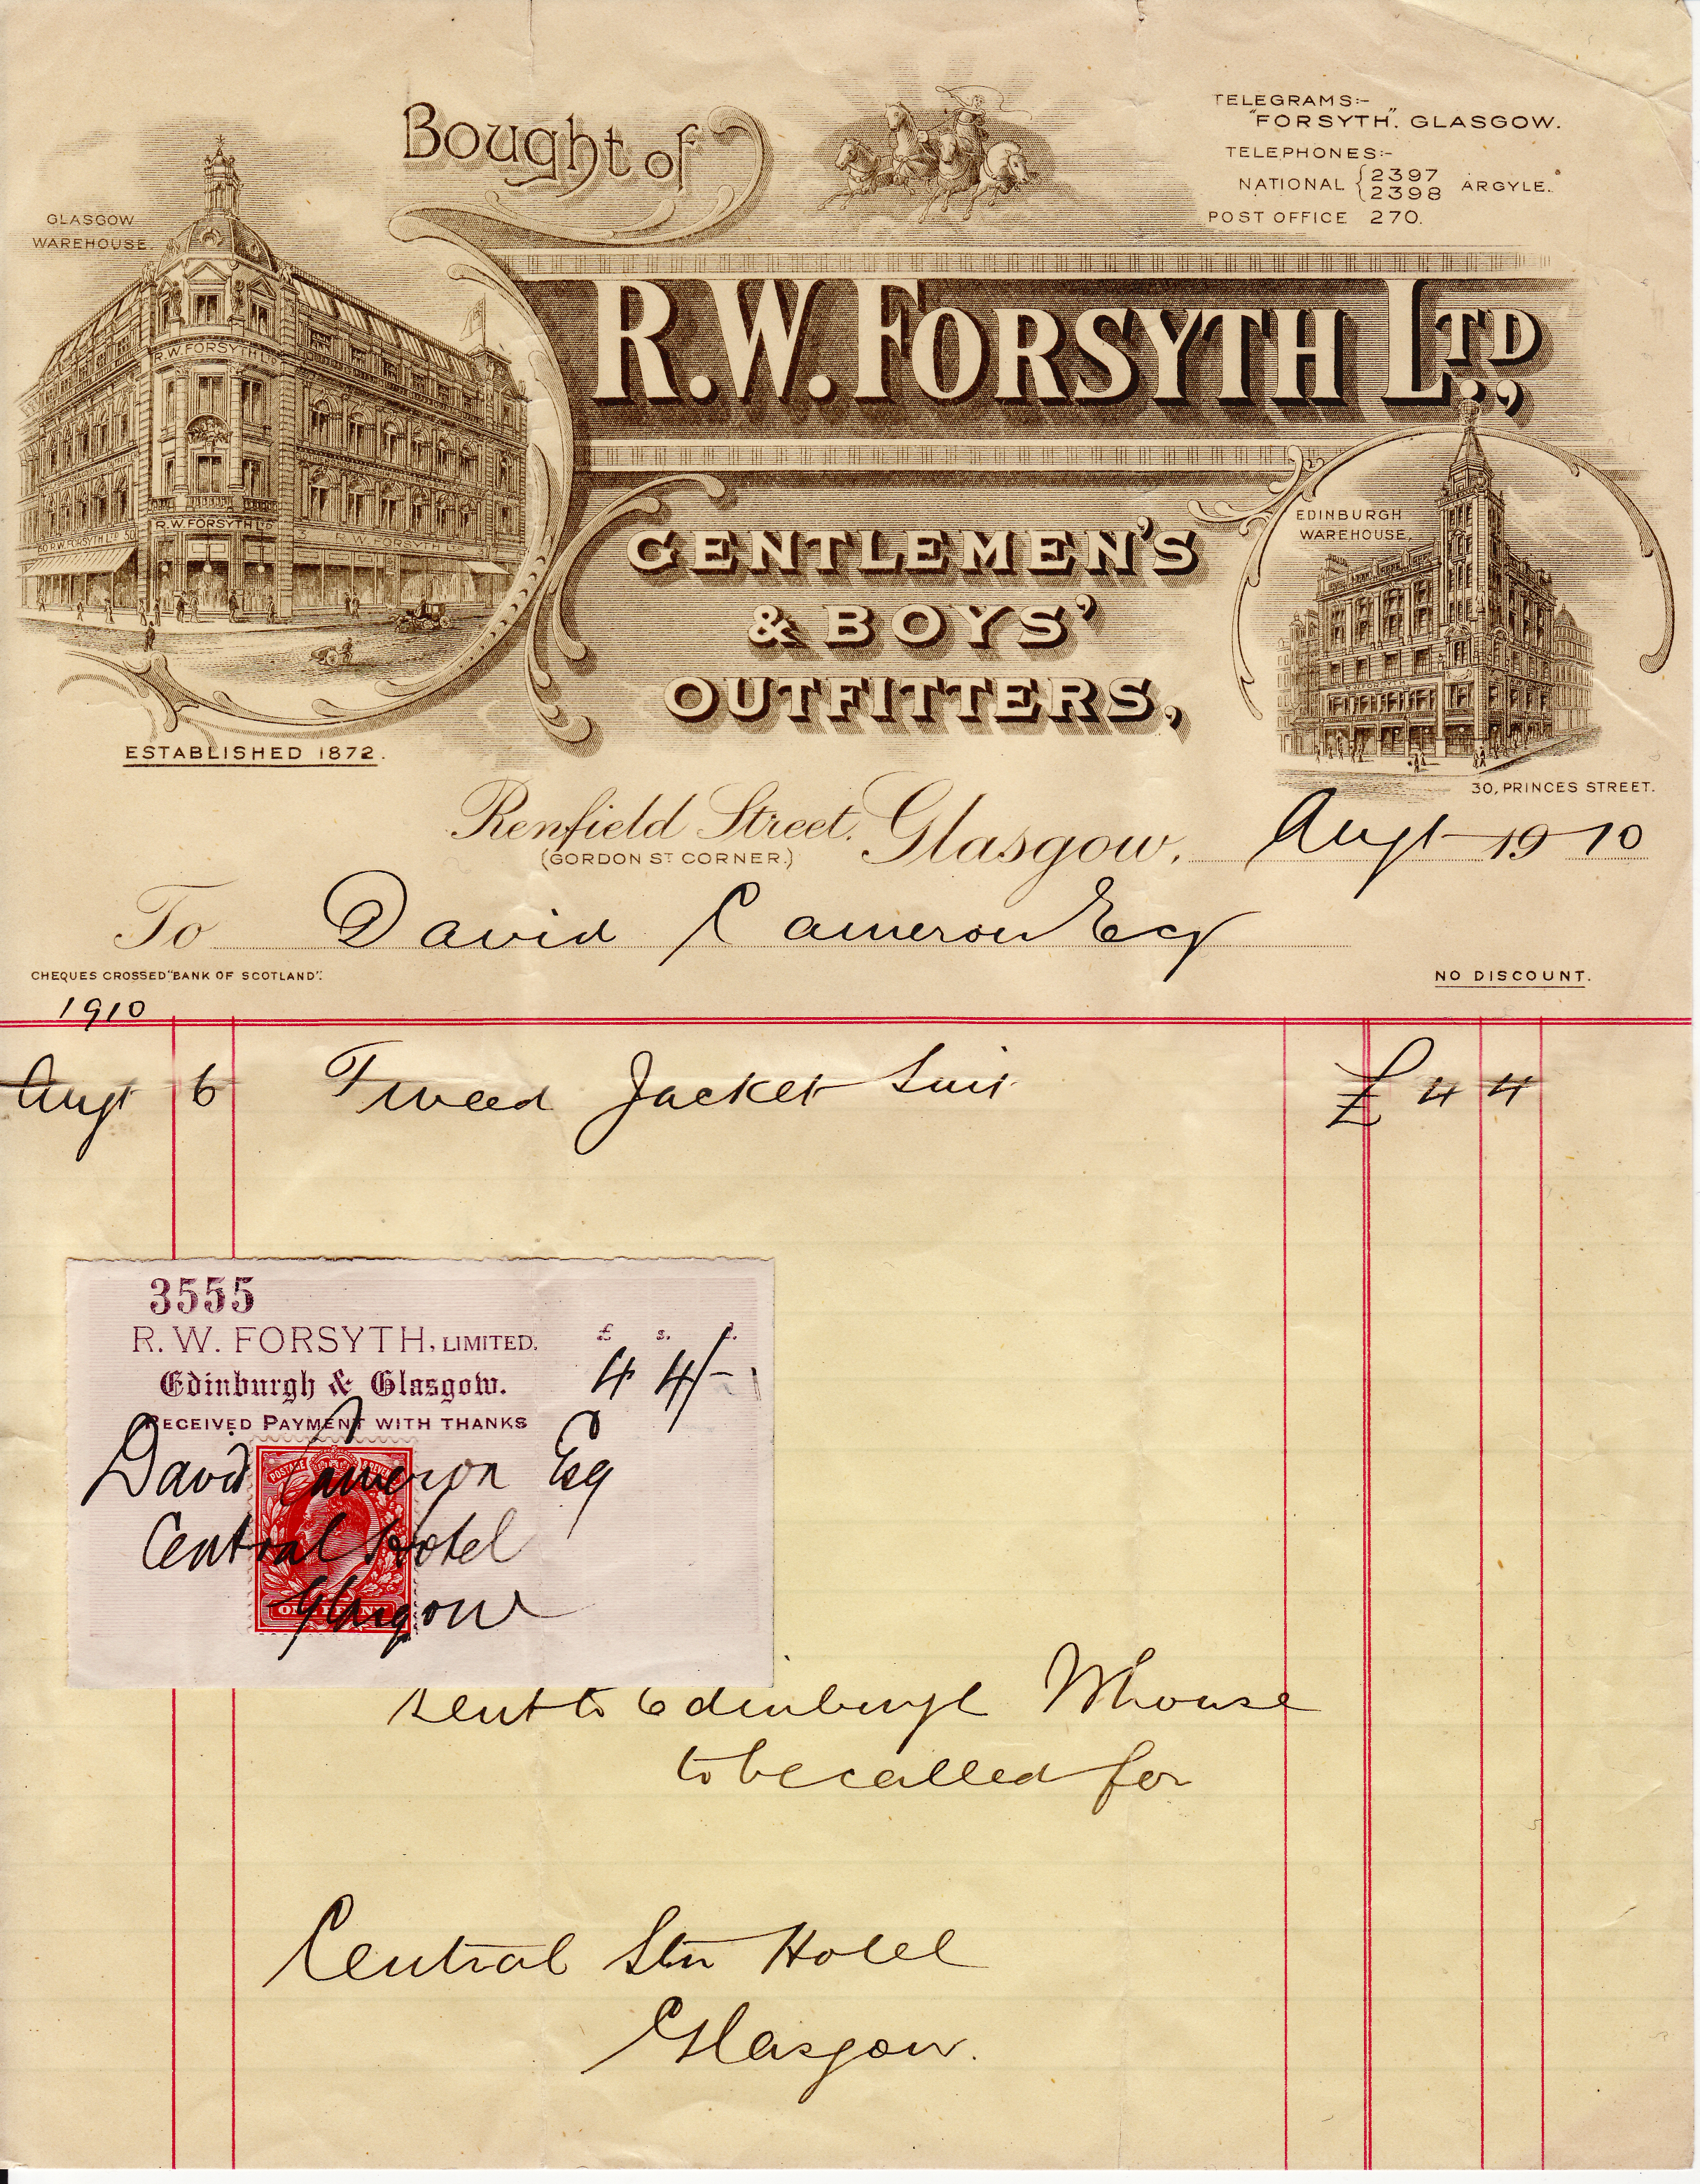 Bought of
TELEGRAMS:-
"FORSYTH". GLASGOW.
TELEPHONES:-
NATIONAL { 2397 2398 ARGYLE.
POST OFFICE 270.
GLASGOW
WAREHOUSE.
R.W. FORSYTH LTD.,
R.W. FORSYTH LTD
R.W. FORSYTH LTD
50 R.W. FORSYTH LTD 50
R.W. FORSYTH LTD
GENTLEMEN'S
& BOYS'
OUTFITTERS,
EDINBURGH
WAREHOUSE.
ESTABLISHED 1872.
30, PRINCES STREET.
Renfield Street. Glasgow, Augt 1910
(GORDON ST CORNER.)
To David Cameron Esq
CHEQUES CROSSED "BANK OF SCOTLAND".
NO DISCOUNT.
1910
Augt 6 Tweed Jacket Suit £ 4 4
3555
R. W. FORSYTH, LIMITED. £ s. d.
Edinburgh & Glasgow. 4 4/-
RECEIVED PAYMENT WITH THANKS
David Cameron Esq
POSTAGE REVENUE
Central Hotel
Glasgow
ONE PENNY
sent to Edinburgh Whouse
to be called for
Central Stn Hotel
Glasgow.